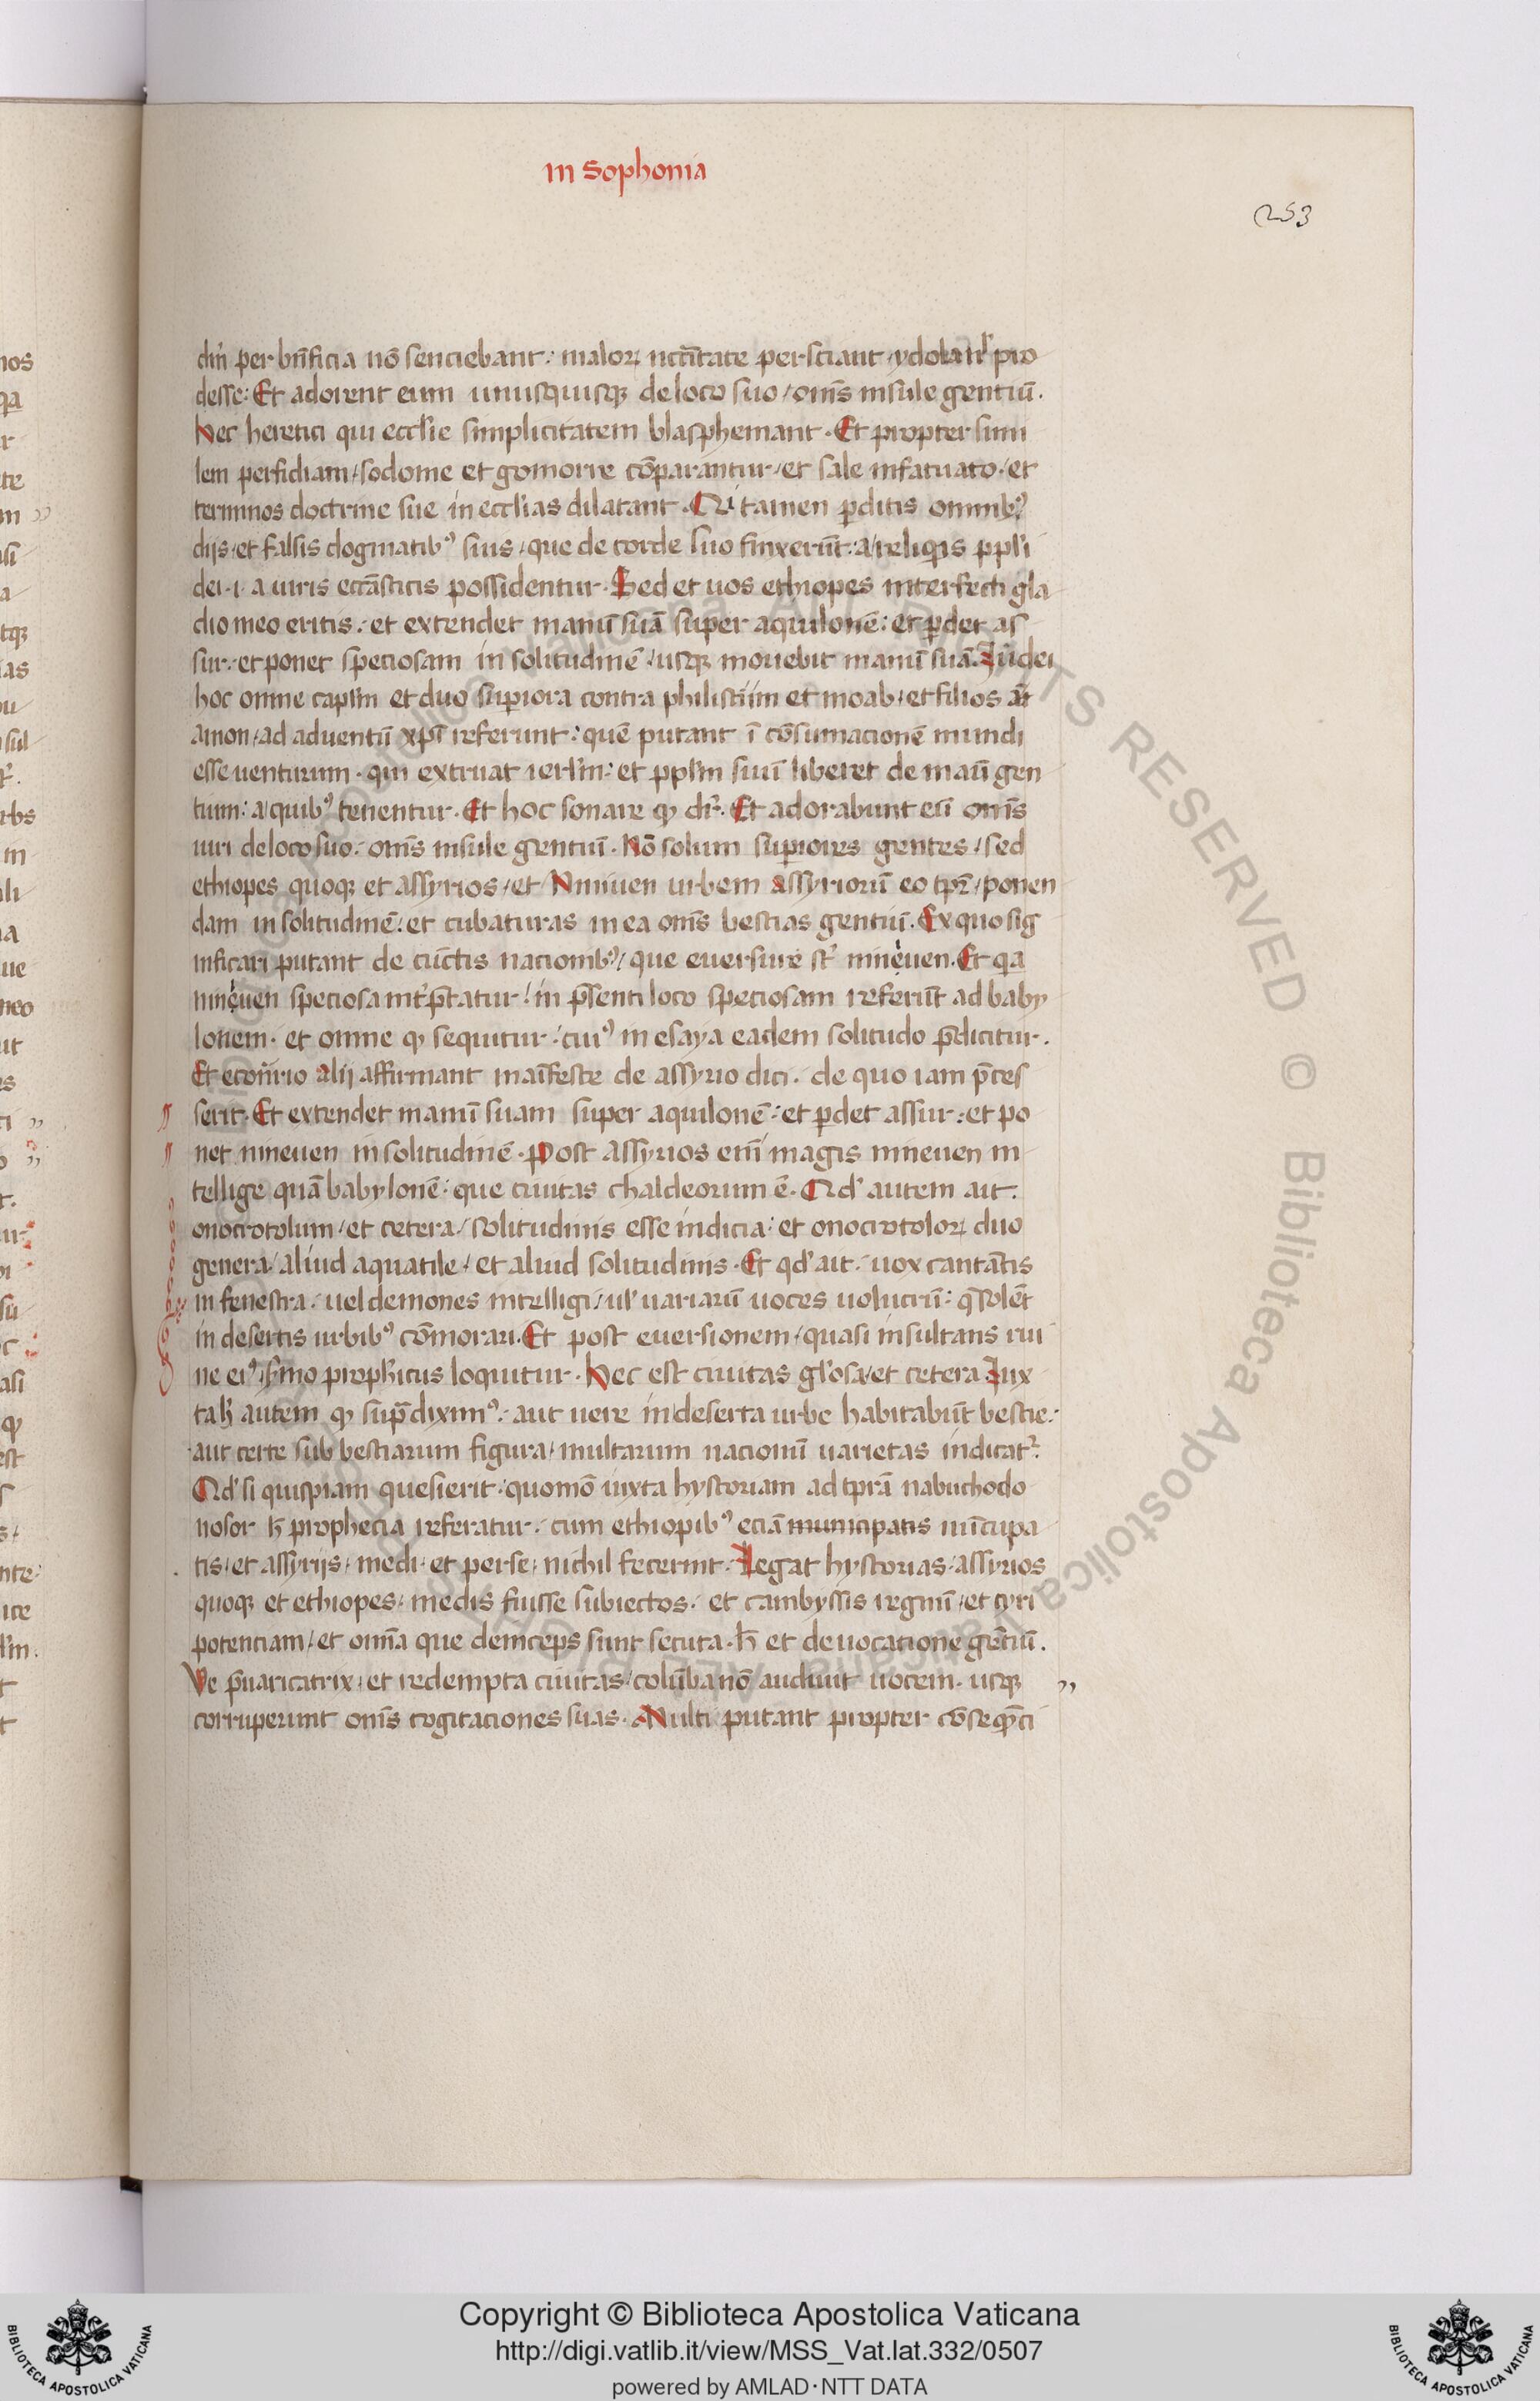 In Sophonia
253
dm̄ per bn̄ficia nō senciebant: maloꝝ nccītate persciant ydola nl̄ pro
desse: Et adorent eum unusquisqꝫ de loco suo / om̄s insule gentiū.
Nec heretici qui eccl̄ie simplicitatem blasphemant. Et propter simi
lem perfidiam / sodome et gomorre cōparantur / et sale infatuato / et
terminos doctrine sue in eccl̄ias dilatant. Qui tamen ꝑditis omnibꝰ
dijs / et falsis dogmatibꝰ suis / que de corde suo finxerūt: a reliquis ppl̄i
dei .i. a uiris eccāsticis possidentur. Sed et uos ethiopes interfecti gla
dio meo eritis: et extendet manū suā super aquilonē: et ꝑdet as
sur: et ponet speciosam in solitudinē / usqꝫ mouebit manū suā. Iudei
hoc omne capl̄m et duo suꝑiora contra philistiim et moab / et filios
amon / ad aduentū xpī referunt: quē putant ī cōsumacionē mundi
esse uenturum. qui extruat ierl̄m: et ppl̄m suū liberet de manū gen
tium: a quibꝰ tenentur. Et hoc sonare qđ dr̄. Et adorabunt eū om̄s
uiri de loco suo: om̄s insule gentiū. Nō solum suꝑiores gentes / sed
ethiopes quoqꝫ et assyrios / et Niniuen urbem assyriorū eo tpr̄e / ponen
dam in solitudinē: et cubaturas in ea om̄s bestias gentiū. Ex quo sig
nificari putant de cūctis nacionibꝰ / que euersure st̄ nineuen. Et qa
nineuen speciosa int̄ꝑtatur / in p̄senti loco speciosam referūt ad baby
lonem. et omne qđ sequitur: cuiꝰ in esaya eadem solitudo p̄dicitur.
Et econtrario alij affirmant manīfeste de assyrio dici. de quo iam p̄ces
serit. Et extendet manū suam super aquilonē: et ꝑdet assur: et po
net nineuen in solitudinē. Post assyrios enī magis nineuen in
tellige quā babylonē: que ciuitas chaldeorum ē. Qđ autem ait.
onocrotolum / et cetera / solitudinis esse indicia: et onocrotoloꝝ duo
genera / aliud aquatile / et aliud solitudinis. Et qđ ait: uox cantātis
in fenestra: uel demones intelligi / ul̄ uariarū uoces uolucrū: q̄ solēt
in desertis urbibꝰ cōmorari. Et post euersionem / quasi insultans rui
ne eiꝰ / sermo prophicus loquitur. Hec est ciuitas gl̄osa / et cetera Iux
ta autem qđ sup̄diximꝰ: aut uere in deserta urbe habitabūt bestie:
aut certe sub bestiarum figura / multarum nacionū uarietas indicat᷑.
Qđ si quispiam quesierit: quomō iuxta hystoriam ad tpr̄a nabuchodo
nosor h̄ prophecia referatur: cum ethiopibꝰ eciā municipatis nūcupa
tis / et assyrijs / medi et perse / nichil fecerint. Legat hystorias / assyrios
quoqꝫ et ethiopes / medis fuisse subiectos: et cambyssis regnū / et cyri
potenciam / et omīa que deinceps sunt secuta. h̄ et de uocatione gētiū.
Ve p̄uaricatrix / et redempta ciuitas / colūba nō audiuit uocem. usqꝫ
corruperunt om̄s cogitaciones suas. Multi putant propter cōseqn̄ci
Copyright © Biblioteca Apostolica Vaticana
http://digi.vatlib.it/view/MSS_Vat.lat.332/0507
powered by AMLAD·NTT DATA
BIBLIOTECA APOSTOLICA VATICANA
BIBLIOTECA APOSTOLICA VATICANA